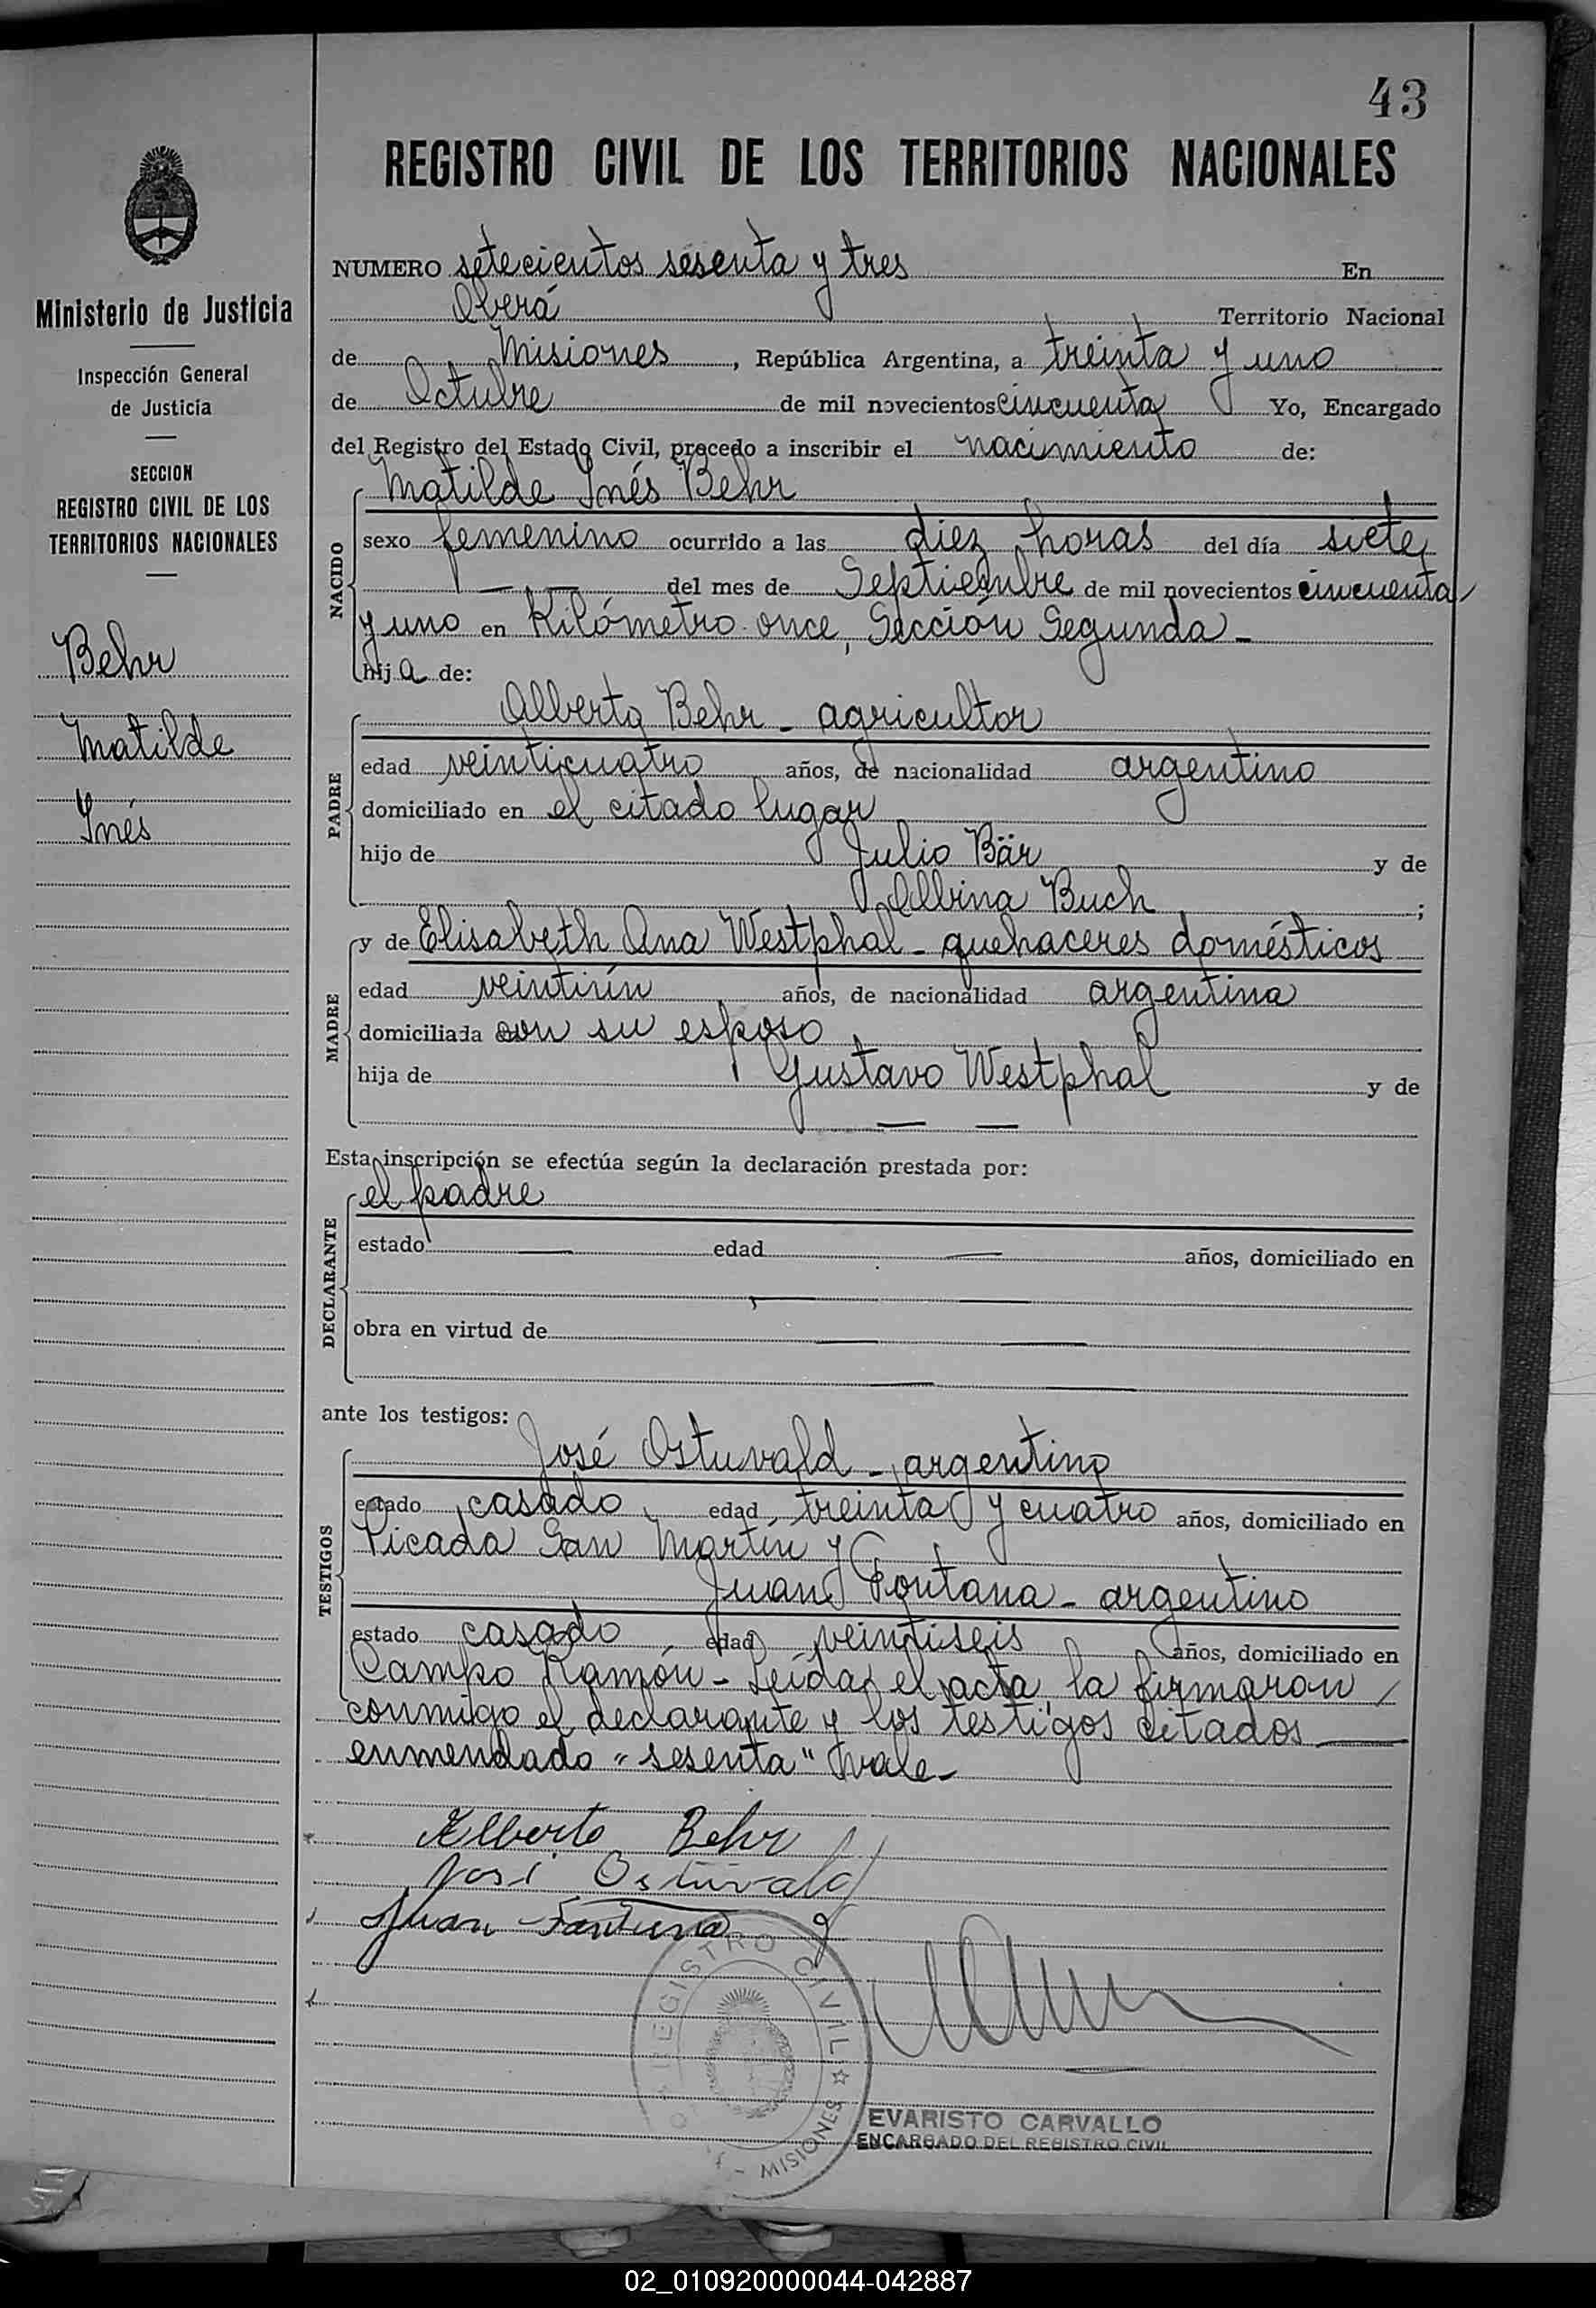 43
REGISTRO CIVIL DE LOS TERRITORIOS NACIONALES
Ministerio de Justicia
Inspección General
de Justicia
SECCION
REGISTRO CIVIL DE LOS
TERRITORIOS NACIONALES
Behr
Matilde
Inés
NUMERO setecientos sesenta y tres En
Oberá Territorio Nacional
de Misiones, República Argentina, a treinta y uno
de Octubre de mil novecientos cincuenta Yo, Encargado
del Registro del Estado Civil, procedo a inscribir el nacimiento de:
NACIDO
Matilde Inés Behr
sexo femenino ocurrido a las diez horas del día siete
del mes de Septiembre de mil novecientos cincuenta
y uno en Kilómetro once, Sección Segunda -
hija de:
PADRE
Alberto Behr - agricultor
edad veinticuatro años, de nacionalidad argentino
domiciliado en el citado lugar
hijo de Julio Bär y de
Albina Buch ;
MADRE
y de Elisabeth Ana Westphal - quehaceres domésticos
edad veintiún años, de nacionalidad argentina
domiciliada con su esposo
hija de Gustavo Westphal y de
— —
Esta inscripción se efectúa según la declaración prestada por:
DECLARANTE
el padre
estado — edad — años, domiciliado en
— —
obra en virtud de — —
— —
ante los testigos:
TESTIGOS
José Ostuvald - argentino
estado casado edad treinta y cuatro años, domiciliado en
Picada San Martín y
Juan Fontana - argentino
estado casado edad veintiseis años, domiciliado en
Campo Ramón - Leída el acta, la firmaron
conmigo el declarante y los testigos citados —
enmendado "sesenta" vale -
Alberto Behr
José Ostuvald
Juan Fontana
REGISTRO CIVIL ☆ MISIONES -
EVARISTO CARVALLO
ENCARGADO DEL REGISTRO CIVIL
02_010920000044-042887